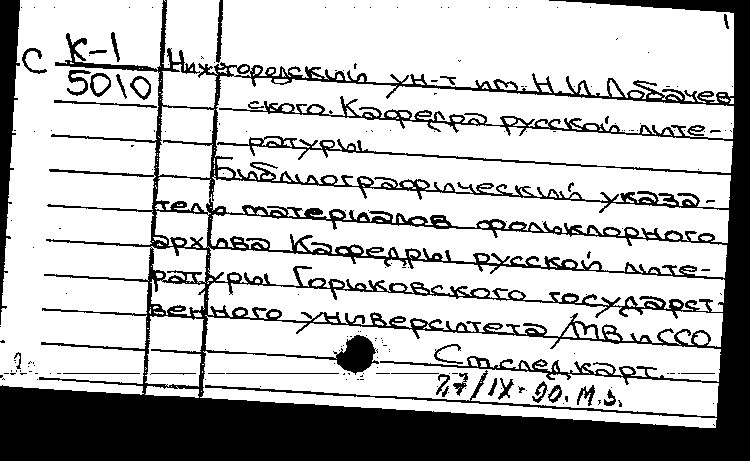 1
С К-1
5010
Нижегородский ун-т им. Н.И. Лобачев-
ского. Кафедра русской лите-
ратуры.
Библиографический указа-
тель материалов фольклорного
архива Кафедры русской лите-
ратуры Горьковского государст-
венного университета /МВ и ССО
См. след. карт.
27/IX-90. М.З.